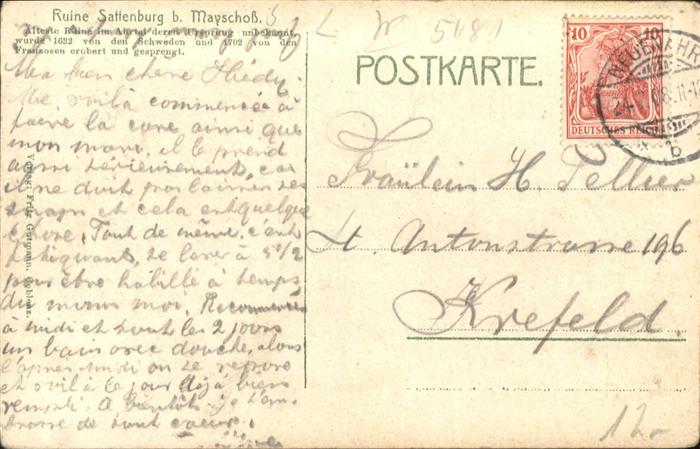 Ruine Sattenburg b. Mayschoß.
Älteste Ruine im Ahrtal deren Ursprung unbekannt,
wurde 1632 von den Schweden und 1702 von den
Franzosen erobert und gesprengt.
Ma bien chère Hédy.
Me voilà commencée à
faire la cure ainsi que
mon mari. il le prend
aussi sérieusement, car
il ne doit pas laisser ses
et cela est quelque
Tout de même, c'est
fatiguant, se lever à 5 1/2
pour être habillé à temps,
du moins moi. Recommencer
à midi et tout les 2 jours
un bain avec douche, alors
l'après-midi on se repose
et voilà le jour déjà bien
A bientôt. je t'em-
brasse de tout coeur.
POSTKARTE.
10 10
DEUTSCHES REICH
NEUENAHR
b
5481
Fräulein H. Pellier
St. Antonstrasse 196
Krefeld.
12.-